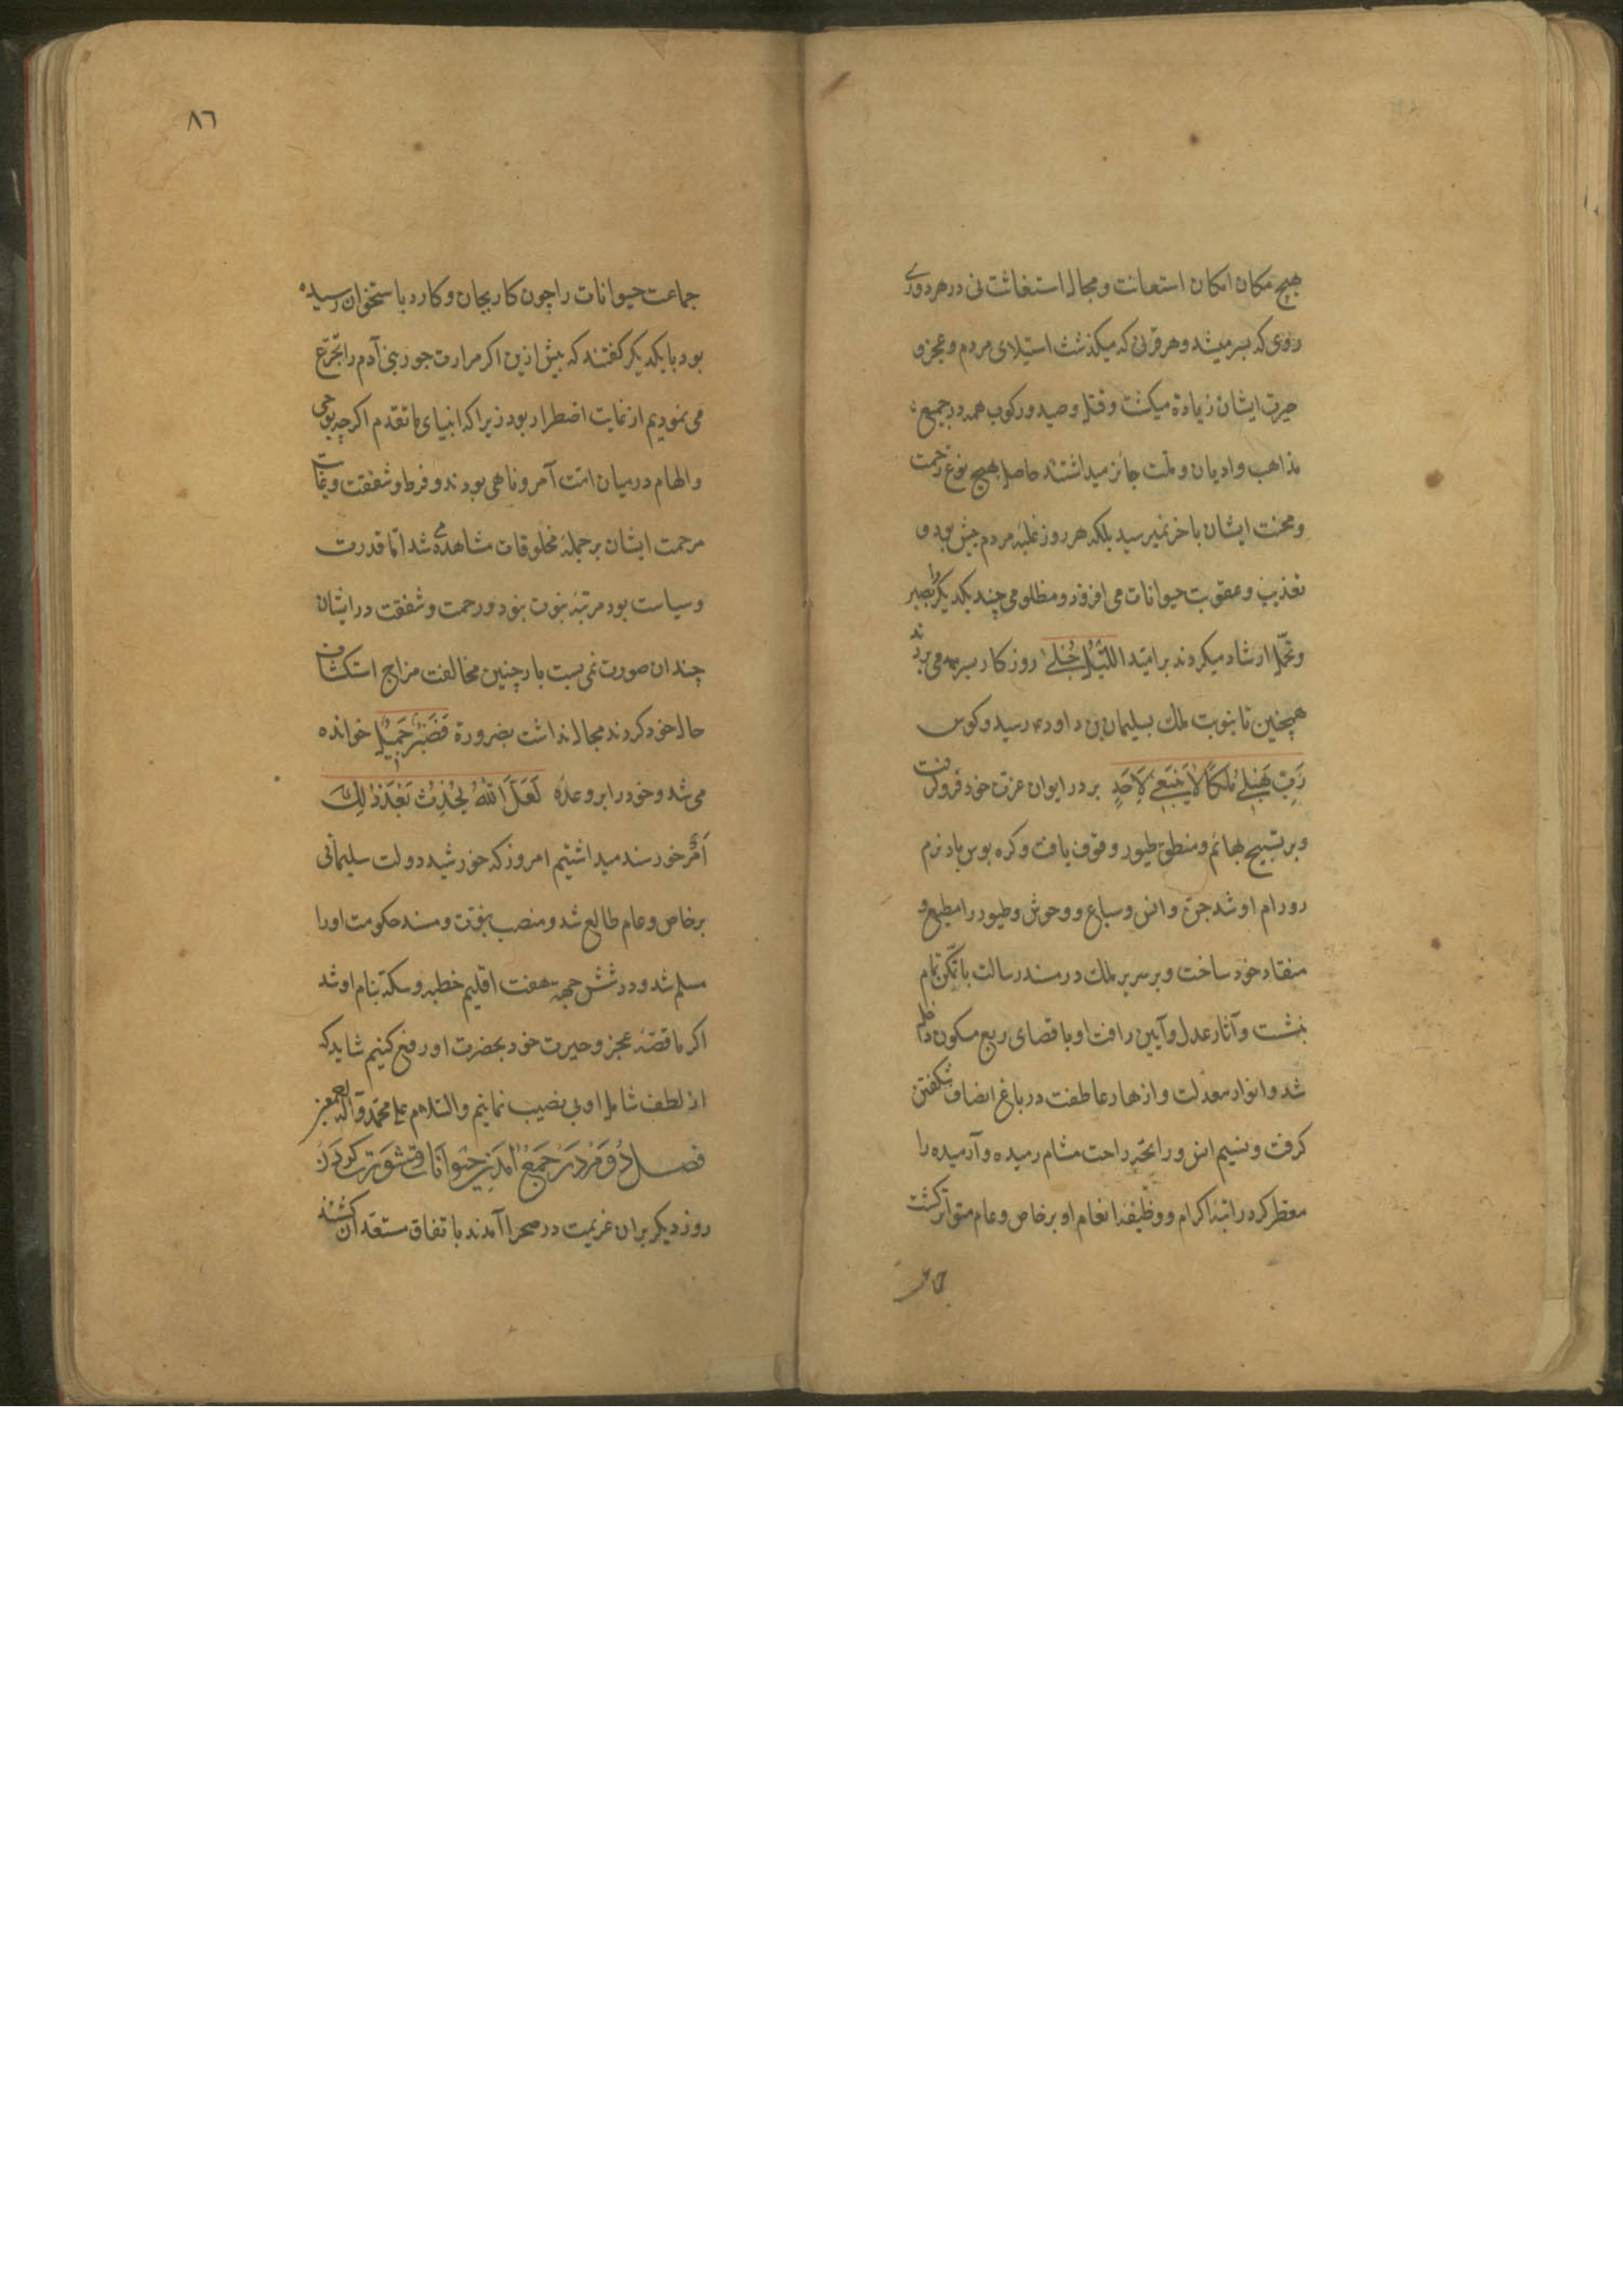 هیچ مکان امکان استعانت و مجال استغاثت نی در هر دوری
روزی که بسر میشد و هر قرنی که میگذشت استیلای مردم و عجز و
حیرت ایشان زیادة میکشت و قتل و صید و رکوب همه در جمیع
مذاهب و ادیان و ملت جائز میداشتند حاصل بهیچ نوع زحمت
و محنت ایشان باخر نمیرسید بلکه هر روز غلبۀ مردم بیش بود و
تعذیب و عقوبت حیوانات می افزود و مظلومی چند یکدیکر را بصبر
و تحمل ارشاد میکردند بر امید اللیل حبلی روزکار بسر می بردند
همچنین تا بنوبت ملك بسلیمان بن داود رسید و کوس
رَبِّ هَبْ لِی مُلْکًا لَا یَنْبَغِی لِاَحَدٍ بر در ایوان عزت خود فرو کوفت
و بر تسبیح بهائم و منطق طیور وقوف یافت و کره بوس باد نرم
رو رام او شد جن و انس و سباع و وحوش و طیور را مطیع و
منقاد خود ساخت و بر سریر ملك در مسند رسالت با تمکن تمام
بنشست و آثار عدل و آیین رافت او باقصای ربع مسکون
شد و انوار معدلت و ازهار عاطفت در باغ انصاف شکفتن
کرفت و نسیم انس و رایحۀ راحت مشام رمیده و آرمیده را
معطر کرد راتبۀ اکرام و وظیفۀ انعام او بر خاص و عام متواتر کشت
٨٦
جماعت حیوانات را چون کار بجان و کارد باستخوان رسیده
بود با یکدیکر کفتند که پیش ازین اکر مرارت جور بنی آدم را تجرّع
می نمودیم از غایت اضطرار بود زیرا که انبیای ما تقدم اکرچه بوحی
و الهام در میان امت آمر و ناهی بودند و فرط و شفقت و غایت
مرحمت ایشان بر جملۀ مخلوقات مشاهده می شد اما قدرت
و سیاست بود مرتبۀ نبوت بنود و رحمت و شفقت در ایشان
چندان صورت نمی بست با چنین مخالفت مزاج استکشاف
حال خود کردند مجال نداشت بضرورة فَصَبْرٌ جَمِیلٌ خوانده
می شد و خود را بر وعدۀ لَعَلَّ اللّٰهَ یُحْدِثُ بَعْدَ ذٰلِكَ
اَمْرًا خورسند میداشتیم امروز که خورشید دولت سلیمانی
بر خاص و عام طالع شد و منصب نبوت و مسند حکومت او را
مسلم شد و در شش جهة هفت اقلیم خطبه و سکه بنام او شد
اکر ما قصۀ عجز و حیرت خود بحضرت او رفع کنیم شاید که
از لطف شامل او بی نصیب نمانیم و السلام علی محمد و آله
فصل دوم در جمع آمدن حیوانات و مشورت کردن
روز دیکر بران عزیمت در صحرا آمدند باتفاق مستعد آن کشتند